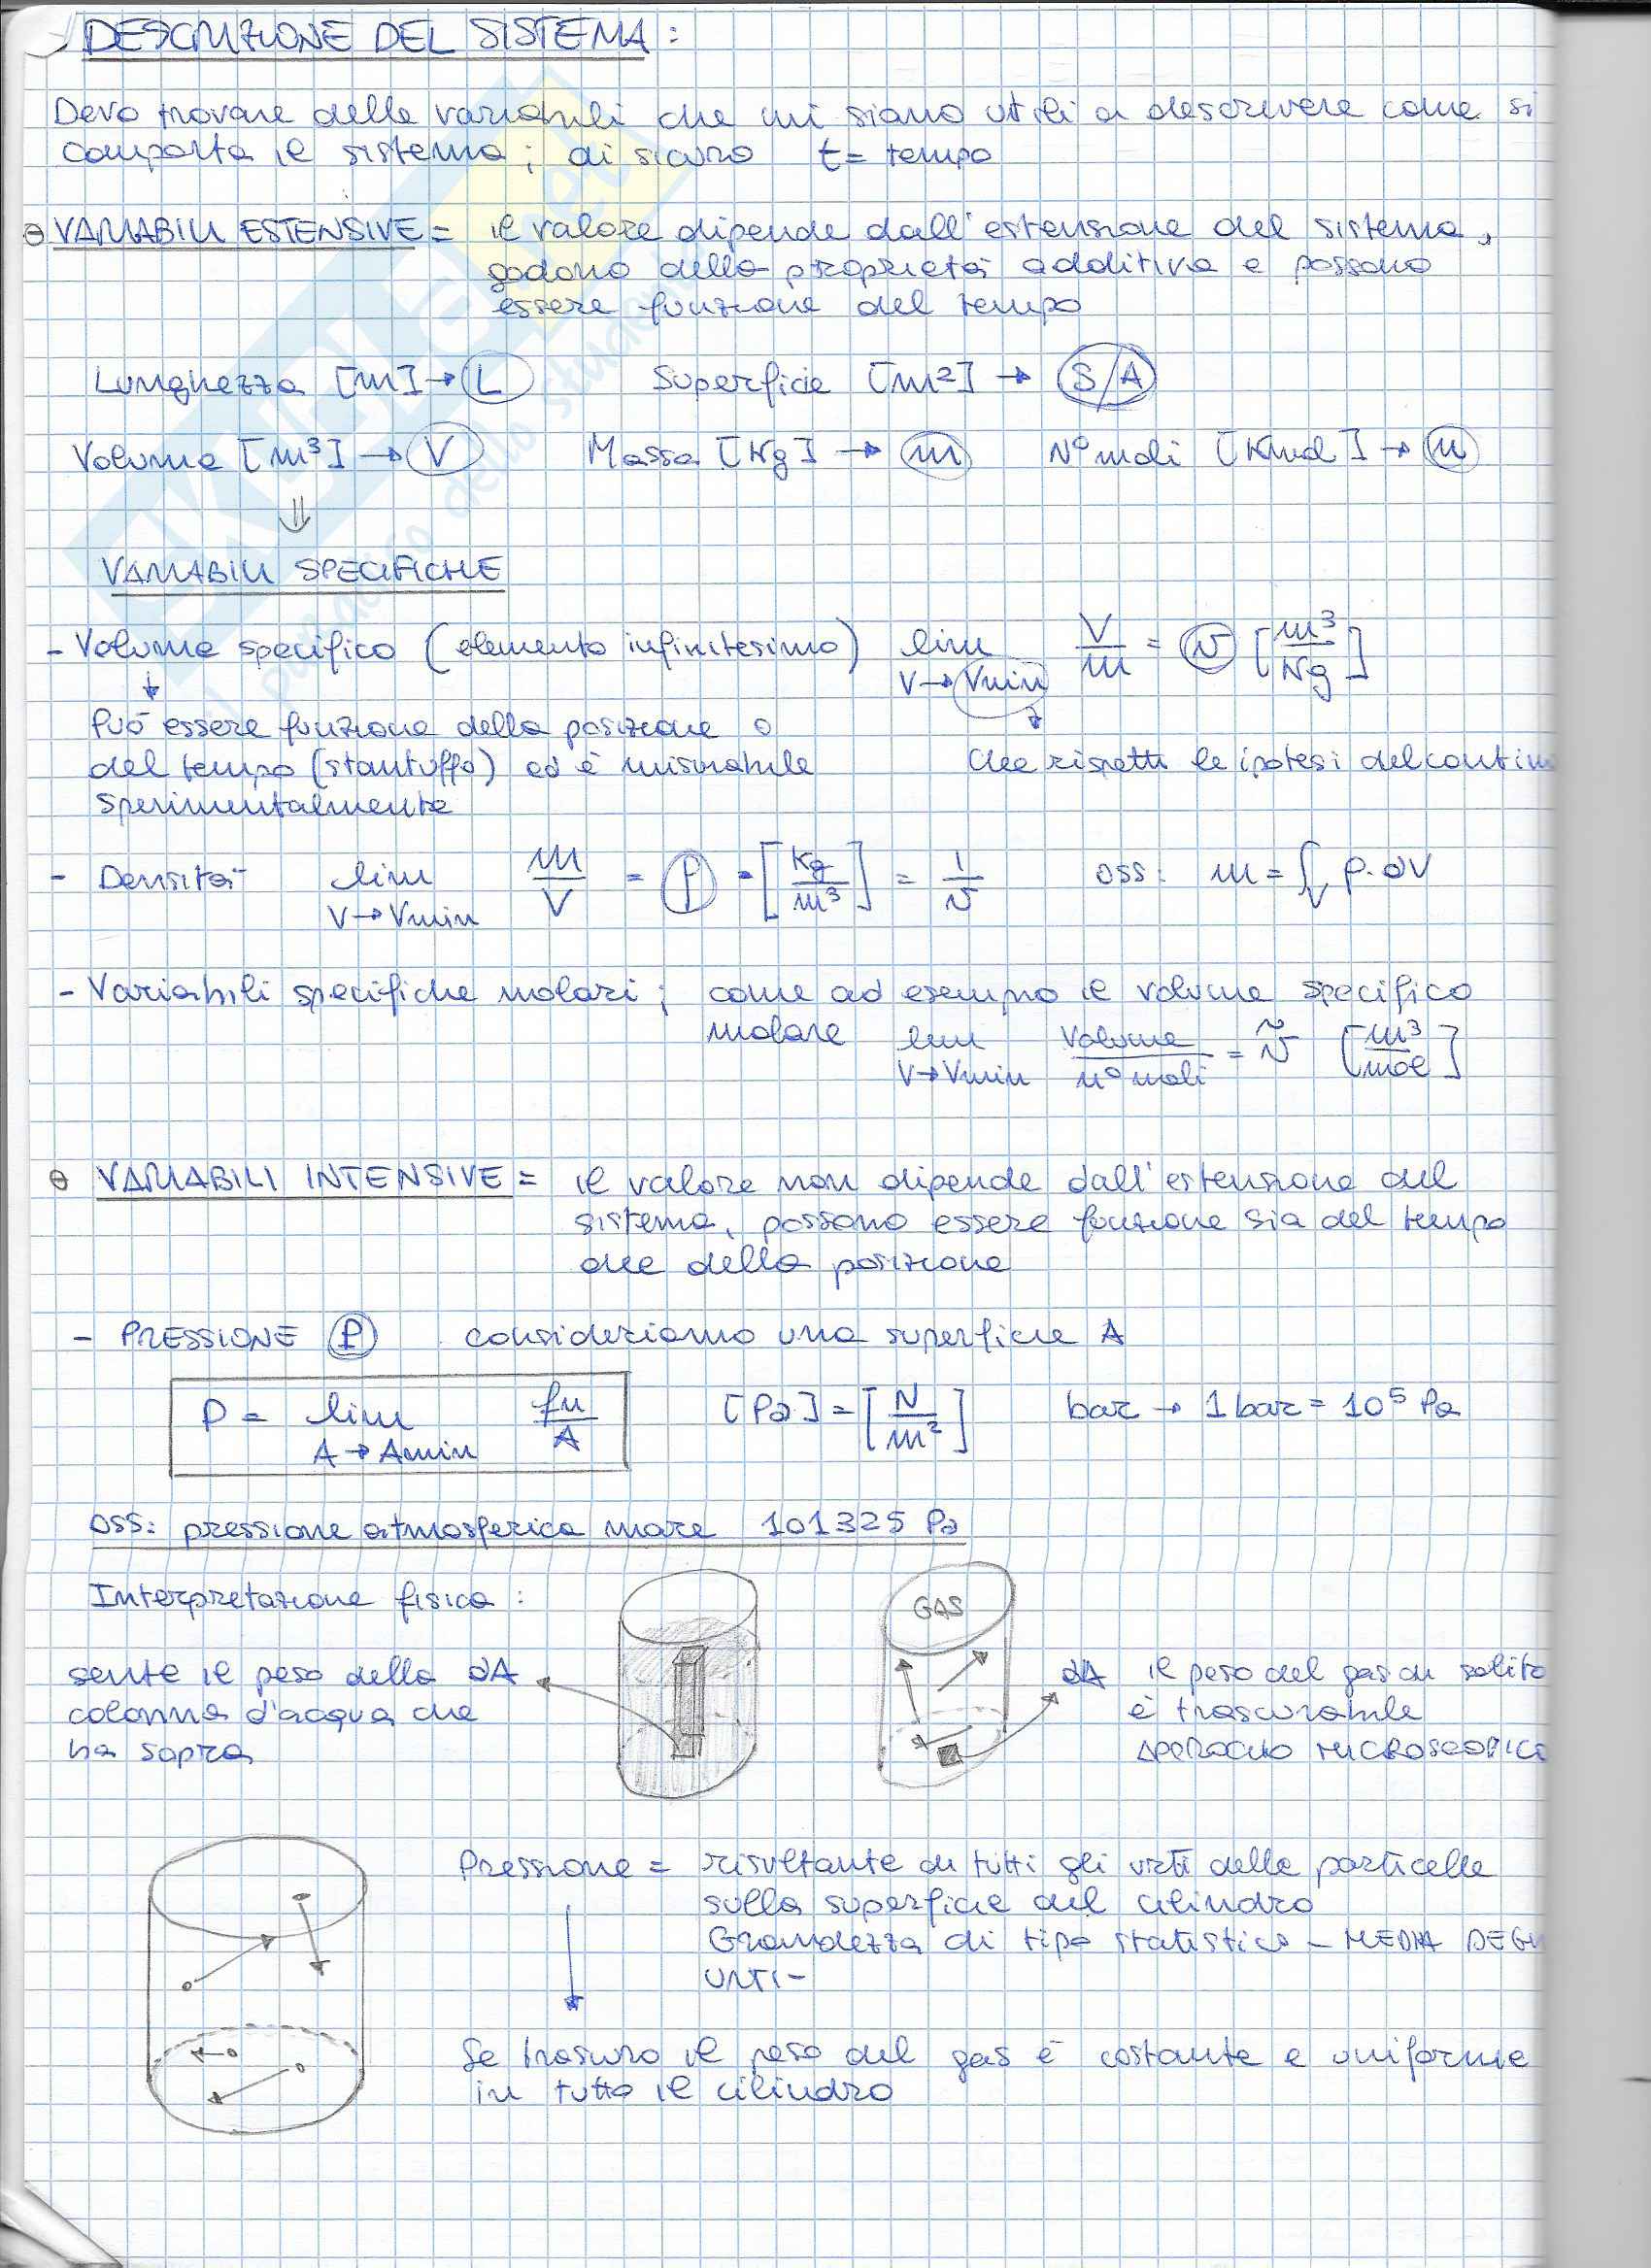 DESCRIZIONE DEL SISTEMA:
Devo trovare delle variabili che mi siano utili a descrivere come si
comporta il sistema; di sicuro t = tempo
VARIABILI ESTENSIVE = il valore dipende dall'estensione del sistema,
godono della proprietà additiva e possono
essere funzione del tempo
Lunghezza [m] → L Superficie [m²] → S/A
Volume [m³] → V Massa [Kg] → m N° moli [Kmol] → n
⇓
VARIABILI SPECIFICHE
- Volume specifico (elemento infinitesimo) lim V→Vmin V/m = v [m³/Kg]
Può essere funzione della posizione o
del tempo (stantuffo) ed è misurabile che rispetti le ipotesi del continu
sperimentalmente
- Densità lim V→Vmin m/V = ρ = [Kg/m³] = 1/v oss: m = ∫V ρ·dV
- Variabili specifiche molari; come ad esempio il volume specifico
molare lim V→Vmin Volume/n° moli = ṽ [m³/mol]
VARIABILI INTENSIVE = il valore non dipende dall'estensione del
sistema, possono essere funzione sia del tempo
che della posizione
- PRESSIONE P consideriamo una superficie A
P = lim A→Amin fn/A [Pa] = [N/m²] bar → 1 bar = 10⁵ Pa
OSS: pressione atmosferica mare 101325 Pa
Interpretazione fisica:
GAS
sente il peso della dA
colonna d'acqua che
ha sopra
dA il peso del gas di solito
è trascurabile
APPROCCIO MICROSCOPICO
Pressione = risultante di tutti gli urti delle particelle
sulla superficie del cilindro
Grandezza di tipo statistico - MEDIA DEGLI
URTI -
Se trascuro il peso del gas è costante e uniforme
in tutto il cilindro